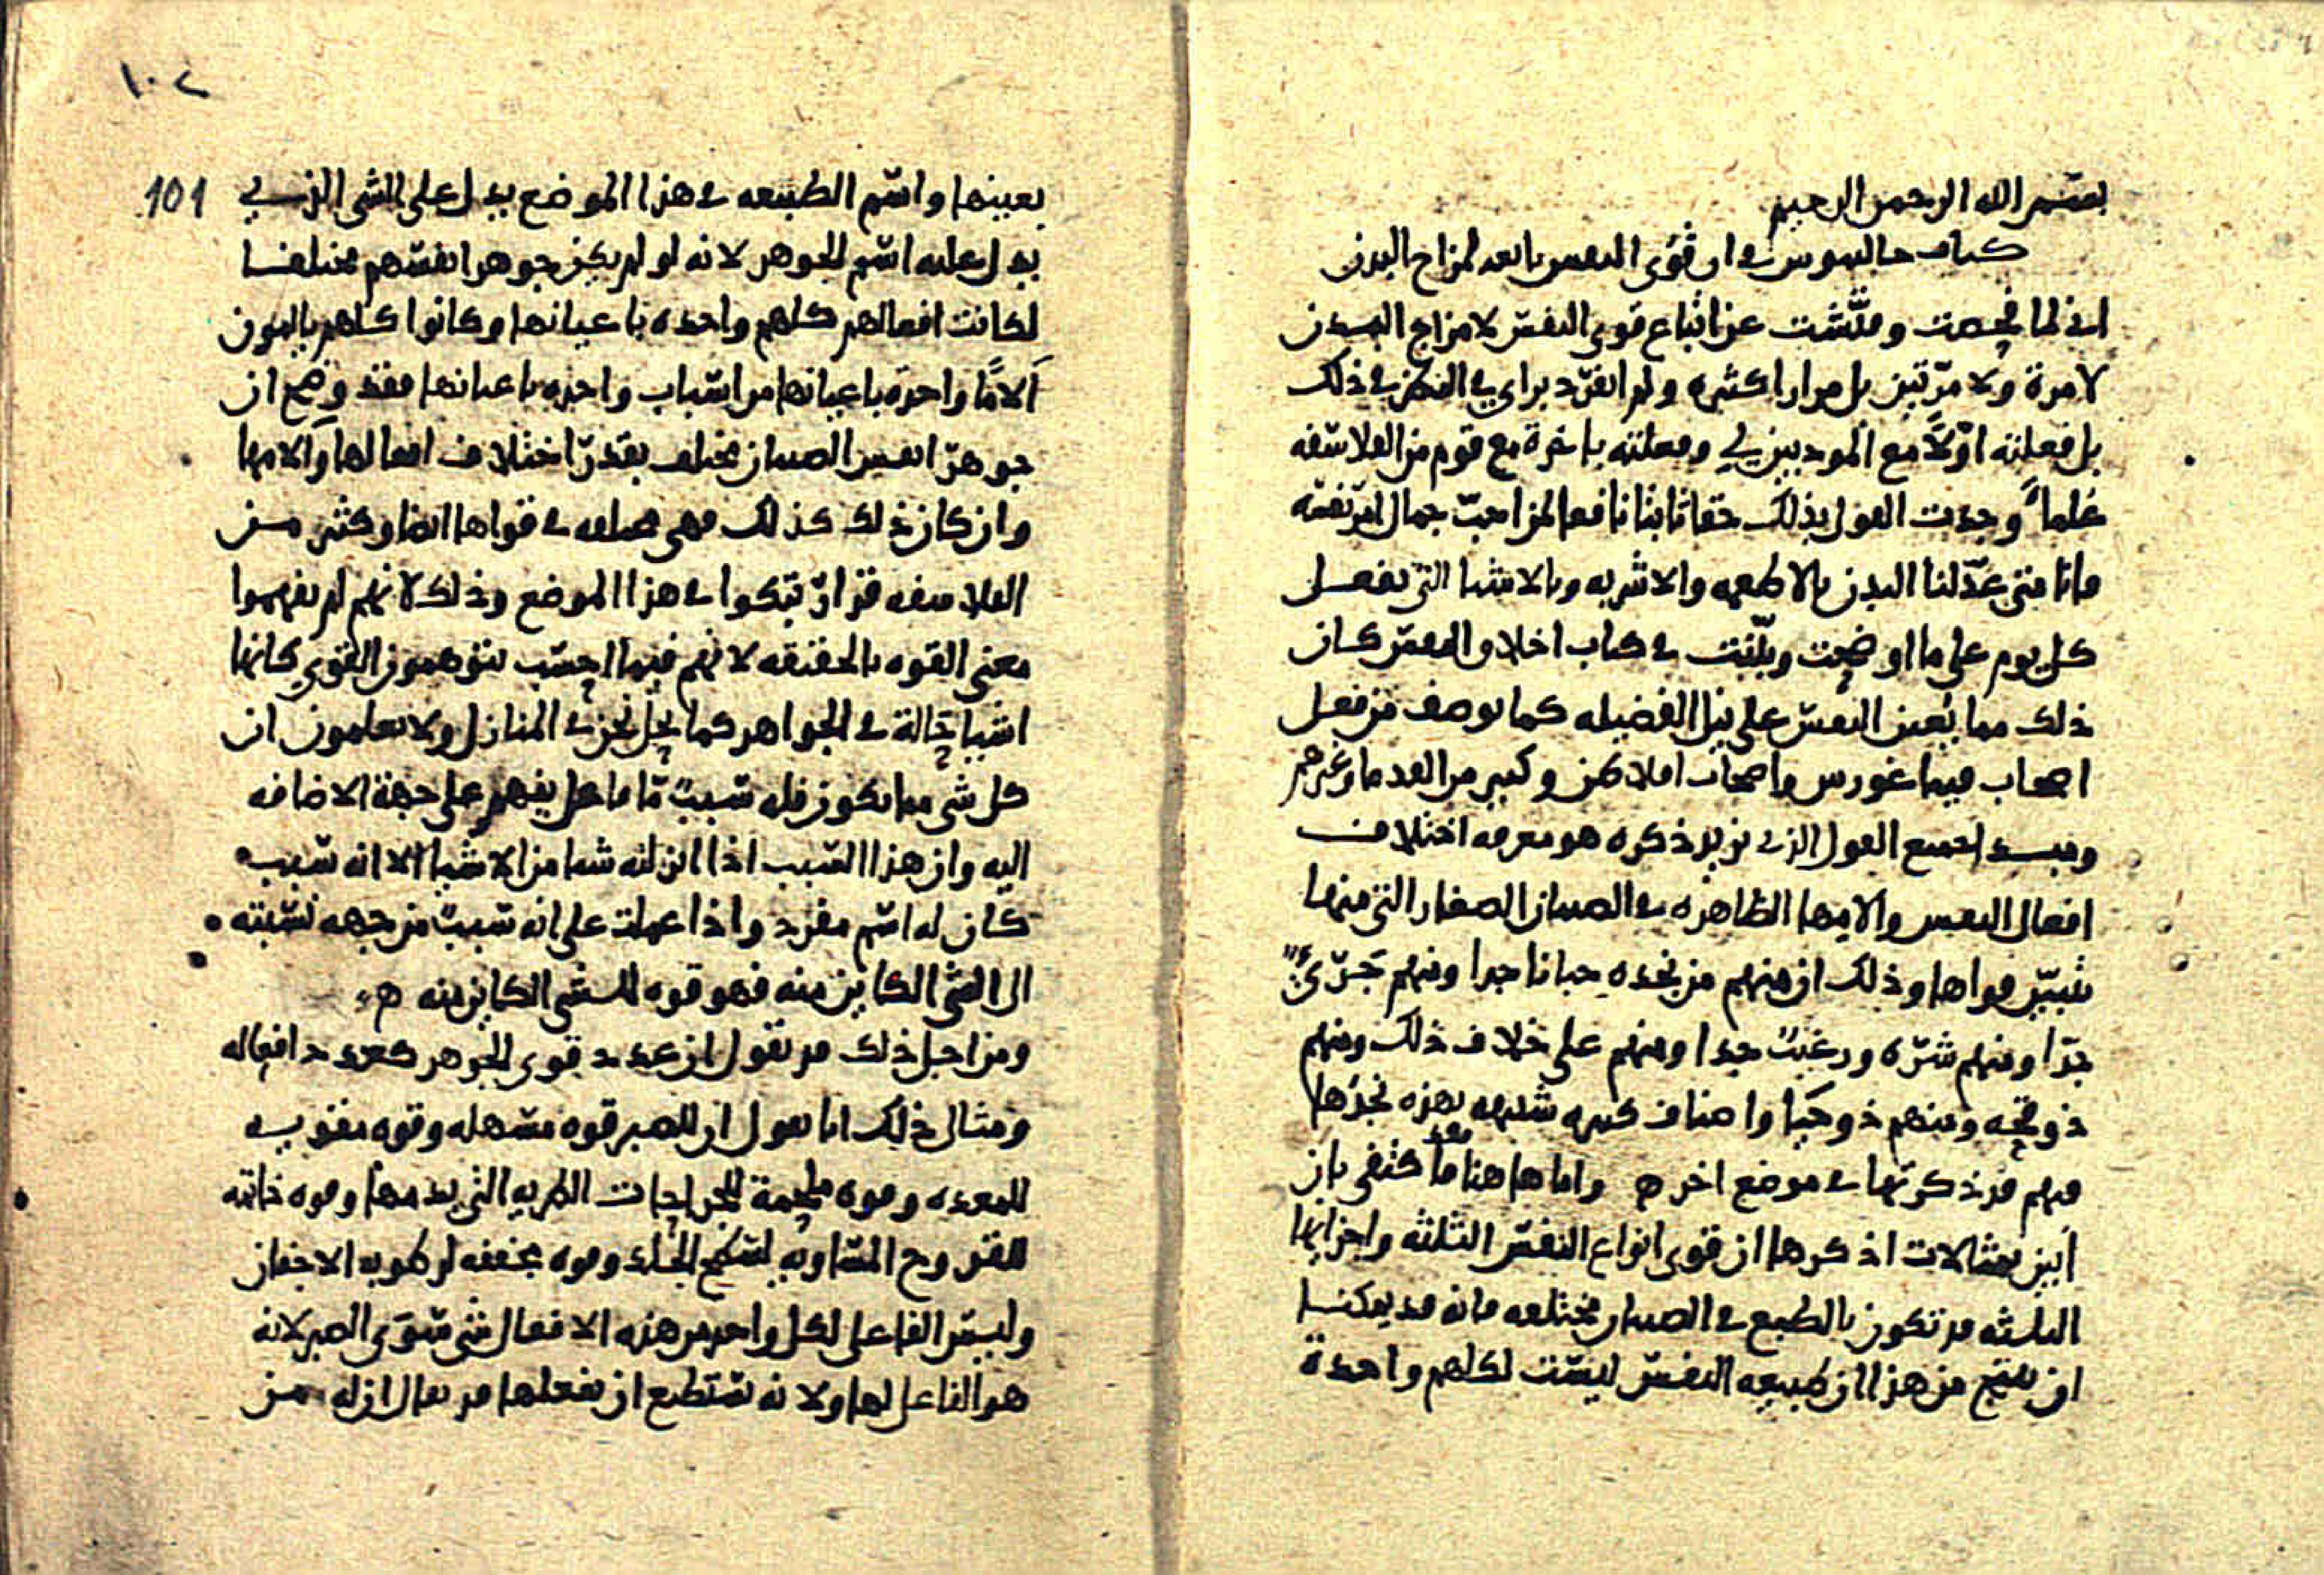 بسم الله الرحمن الرحيم
كتاب جالينوس في ان قوى النفس تابعه لمزاج البدن
اني لما فحصت وفتّشت عن اتباع قوى النفس لامزاج البدن
لا مرة ولا مرّتين بل مرارا كثيره ولم انفرّد براي في الفحص في ذلك
بل فعلته اوّلاً مع المودبين لي وفعلته باخرة مع قوم من الفلاسفه
علماءً وجدت القول بذلك حقا ثابتا نافعا لمن احبّ جمال امر نفسه
فانا متى عدّلنا البدن بالاطعمه والاشربه وبالاشيا التي نفعل
كل يوم على ما اوضحت وبيّنت في كتاب اخلاق النفس كان
ذلك مما يُعين النفس على نيل الفضيله كما يوصف من فعل
اصحاب فيثاغورس واصحاب افلاطن وكثير من القدما وغيرهم
ومبدا جميع القول الذي نريد ذكره هو معرفه اختلاف
افعال النفس والامها الظاهره في الصبيان الصغار التي منها
تتبيّن قواها وذلك ان منهم من نجده جبانا جدا ومنهم جَرِّيءٌ
جدّا ومنهم شرّه ورغيبٌ جدا ومنهم على خلاف ذلك ومنهم
ذو قحه ومنهم ذو حيا واصناف كثيره شبيهه بهذه نجدها
فيهم قد ذكرتها في موضع اخر ه واما هاهنا فقد اكتفى بان
ابين بمثالات اذكرها ان قوى انواع النفس الثلثه واجزايها
الثلثه قد تكون بالطبع في الصبيان مختلفه فانه قد يمكننا
ان ننتج من هذا ان طبيعه النفس ليست لكلهم واحدة
١٠٢
101
بعينها واسم الطبيعه في هذا الموضع يدل على الشي الذي
يدل عليه اسم الجوهر لانه لو لم يكن جوهر انفسهم مختلفا
لكانت افعالهم كلهم واحده باعيانها وكانوا كلهم يالمون
آلامًا واحده باعيانها من اسباب واحده باعيانها فقد وضح ان
جوهر انفس الصبيان مختلف بقدر اختلاف افعالها وآلامها
وان كان ذلك كذلك فهي مختلفه في قواها ايضا وكثير من
الفلاسفه قد ارتبكوا في هذا الموضع وذلك لانهم لم يفهموا
معنى القوه بالحقيقه لانهم فيما احسب يتوهمون القوى كانها
اشيا حالة في الجواهر كما نحل نحن في المنازل ولا يعلمون ان
كل شي مما يكون فله سببٌ مّا فاعل يفهم على جهة الاضافه
اليه وان هذا السبب اذا انزلته شيا من الاشيا الا انه سبب
كان له اسم مفرد واذا عملت على انه سببٌ من جهه نسبته
الى الشي الكاين منه فهو قوه للشي الكاين منه ه
ومن اجل ذلك قد نقول ان عدد قوى الجوهر كعدد افعاله
ومثال ذلك انا نقول ان للصبر قوه مسهله وقوه مقويه
للمعده وقوه ملحمة للجراحات الطريه التي بدمها وقوه خاتمه
للقروح المتساويه لسطح الجلد وقوه مجففه لرطوبه الاجفان
وليس الفاعل لكل واحد من هذه الافعال شي سوى الصبر لانه
هو الفاعل لها ولانه يستطيع ان يفعلها قد يقال ان له من